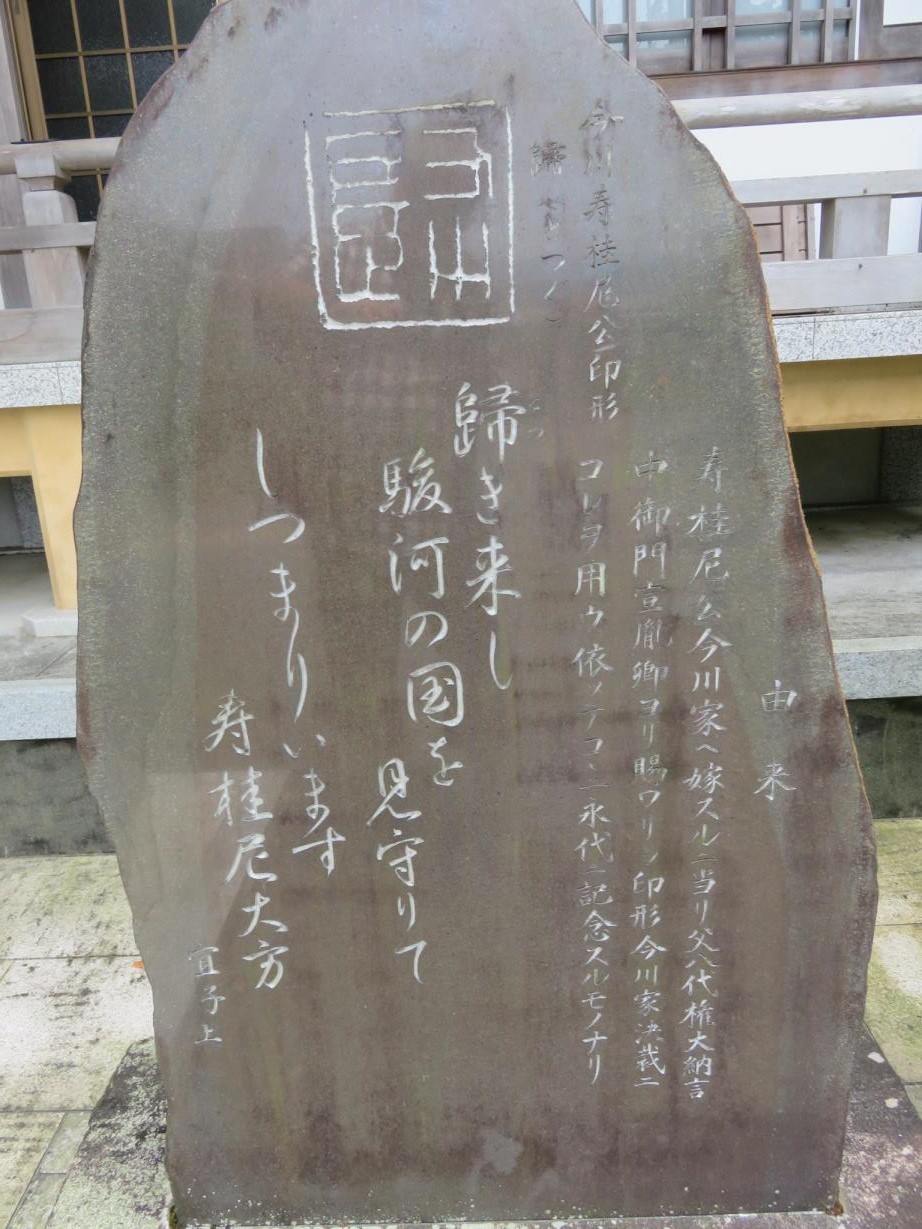 今川寿桂尼公印形
歸(とつぐ)
由来
寿桂尼公今川家ヘ嫁スルニ当リ父八代権大納言
中御門宣胤卿ヨリ賜ワリシ印形今川家決裁ニ
コレヲ用ウ依ッテココニ永代ニ記念スルモノナリ
歸き来し
駿河の国を見守りて
しつまりいます
寿桂尼大方
宜子上